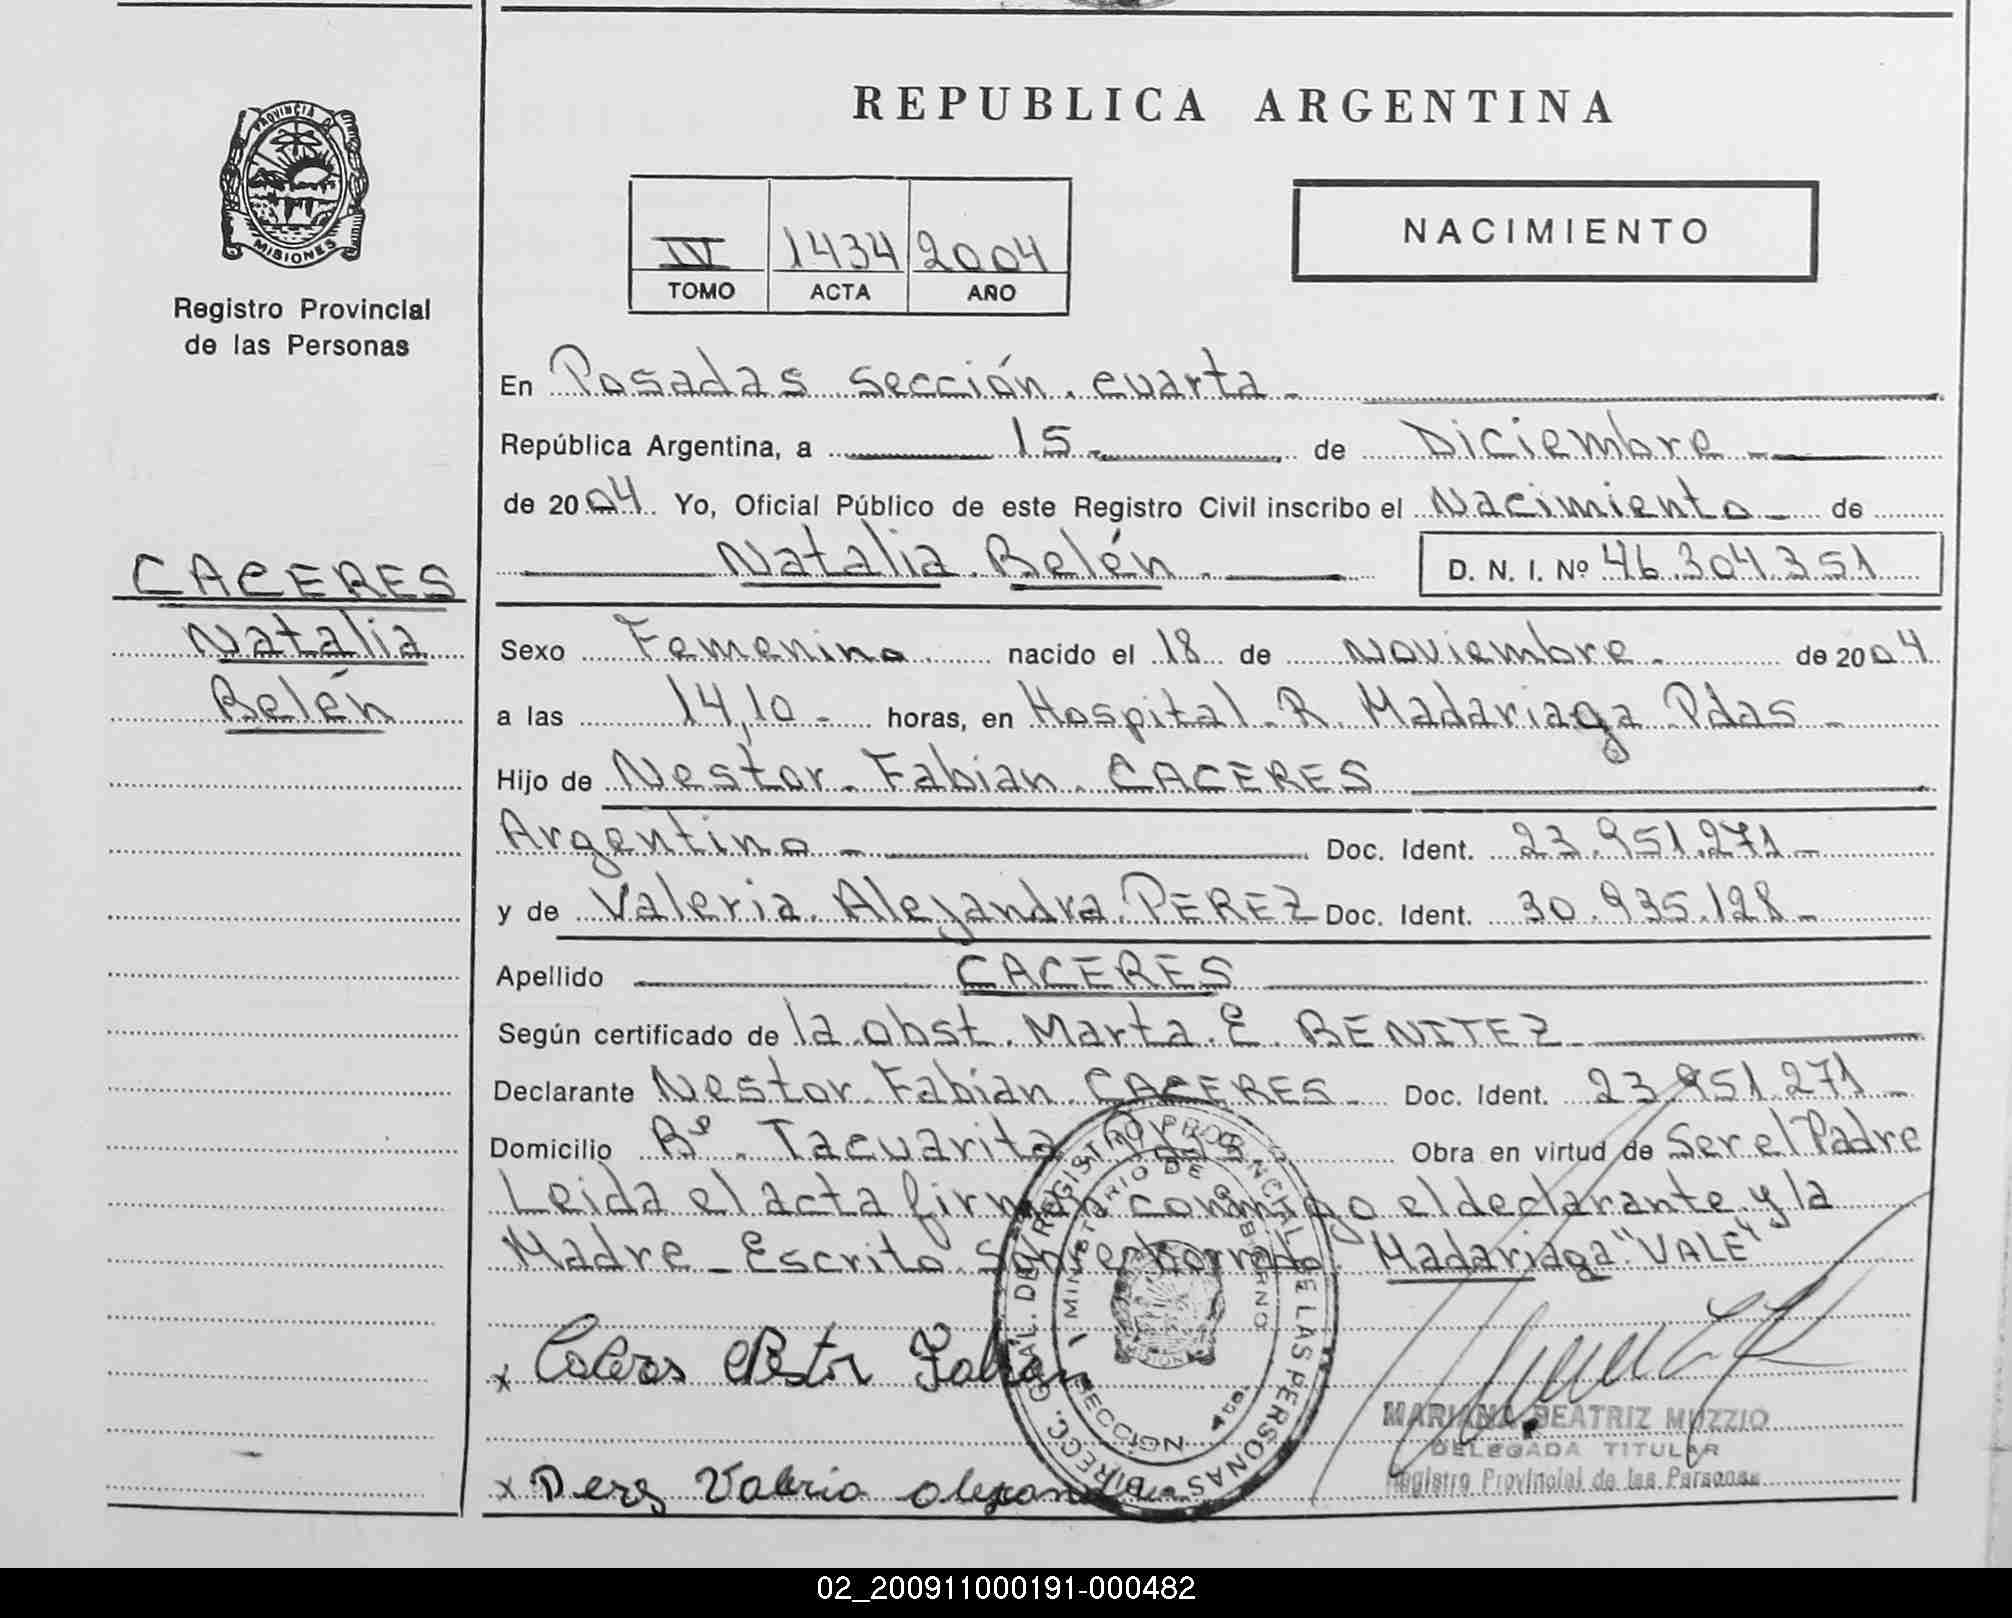 PROVINCIA DE
MISIONES
Registro Provincial
de las Personas
CACERES
Natalia
Belén
REPUBLICA ARGENTINA
IV 1434 2004
TOMO ACTA AÑO
NACIMIENTO
En Posadas sección cuarta
República Argentina, a 15 de Diciembre
de 2004 Yo, Oficial Público de este Registro Civil inscribo el Nacimiento de
Natalia Belén D. N. I. Nº 46.304.351
Sexo Femenino nacido el 18 de Noviembre de 2004
a las 14,10 horas, en Hospital R. Madariaga Pdas
Hijo de Nestor Fabian CACERES
Argentino Doc. Ident. 23.951.271
y de Valeria Alejandra PEREZ Doc. Ident. 30.935.128
Apellido CACERES
Según certificado de la obst. Marta E. BENITEZ
Declarante Nestor Fabián CACERES Doc. Ident. 23.951.271
Domicilio Bº Tacuarita Pdas Obra en virtud de Ser el Padre
Leida el acta firman conmigo el declarante y la
Madre Escrito Sobre borrado: Madariaga "VALE"
x Caceres Nestor Fabian
x Perez Valeria alejandra
DIRECC. GRAL. DEL REGISTRO PROVINCIAL DE LAS PERSONAS
MINISTERIO DE GOBIERNO
SECCIÓN 4ta.
MISIONES
MARIANA BEATRIZ MUZZIO
DELEGADA TITULAR
Registro Provincial de las Personas
02_200911000191-000482